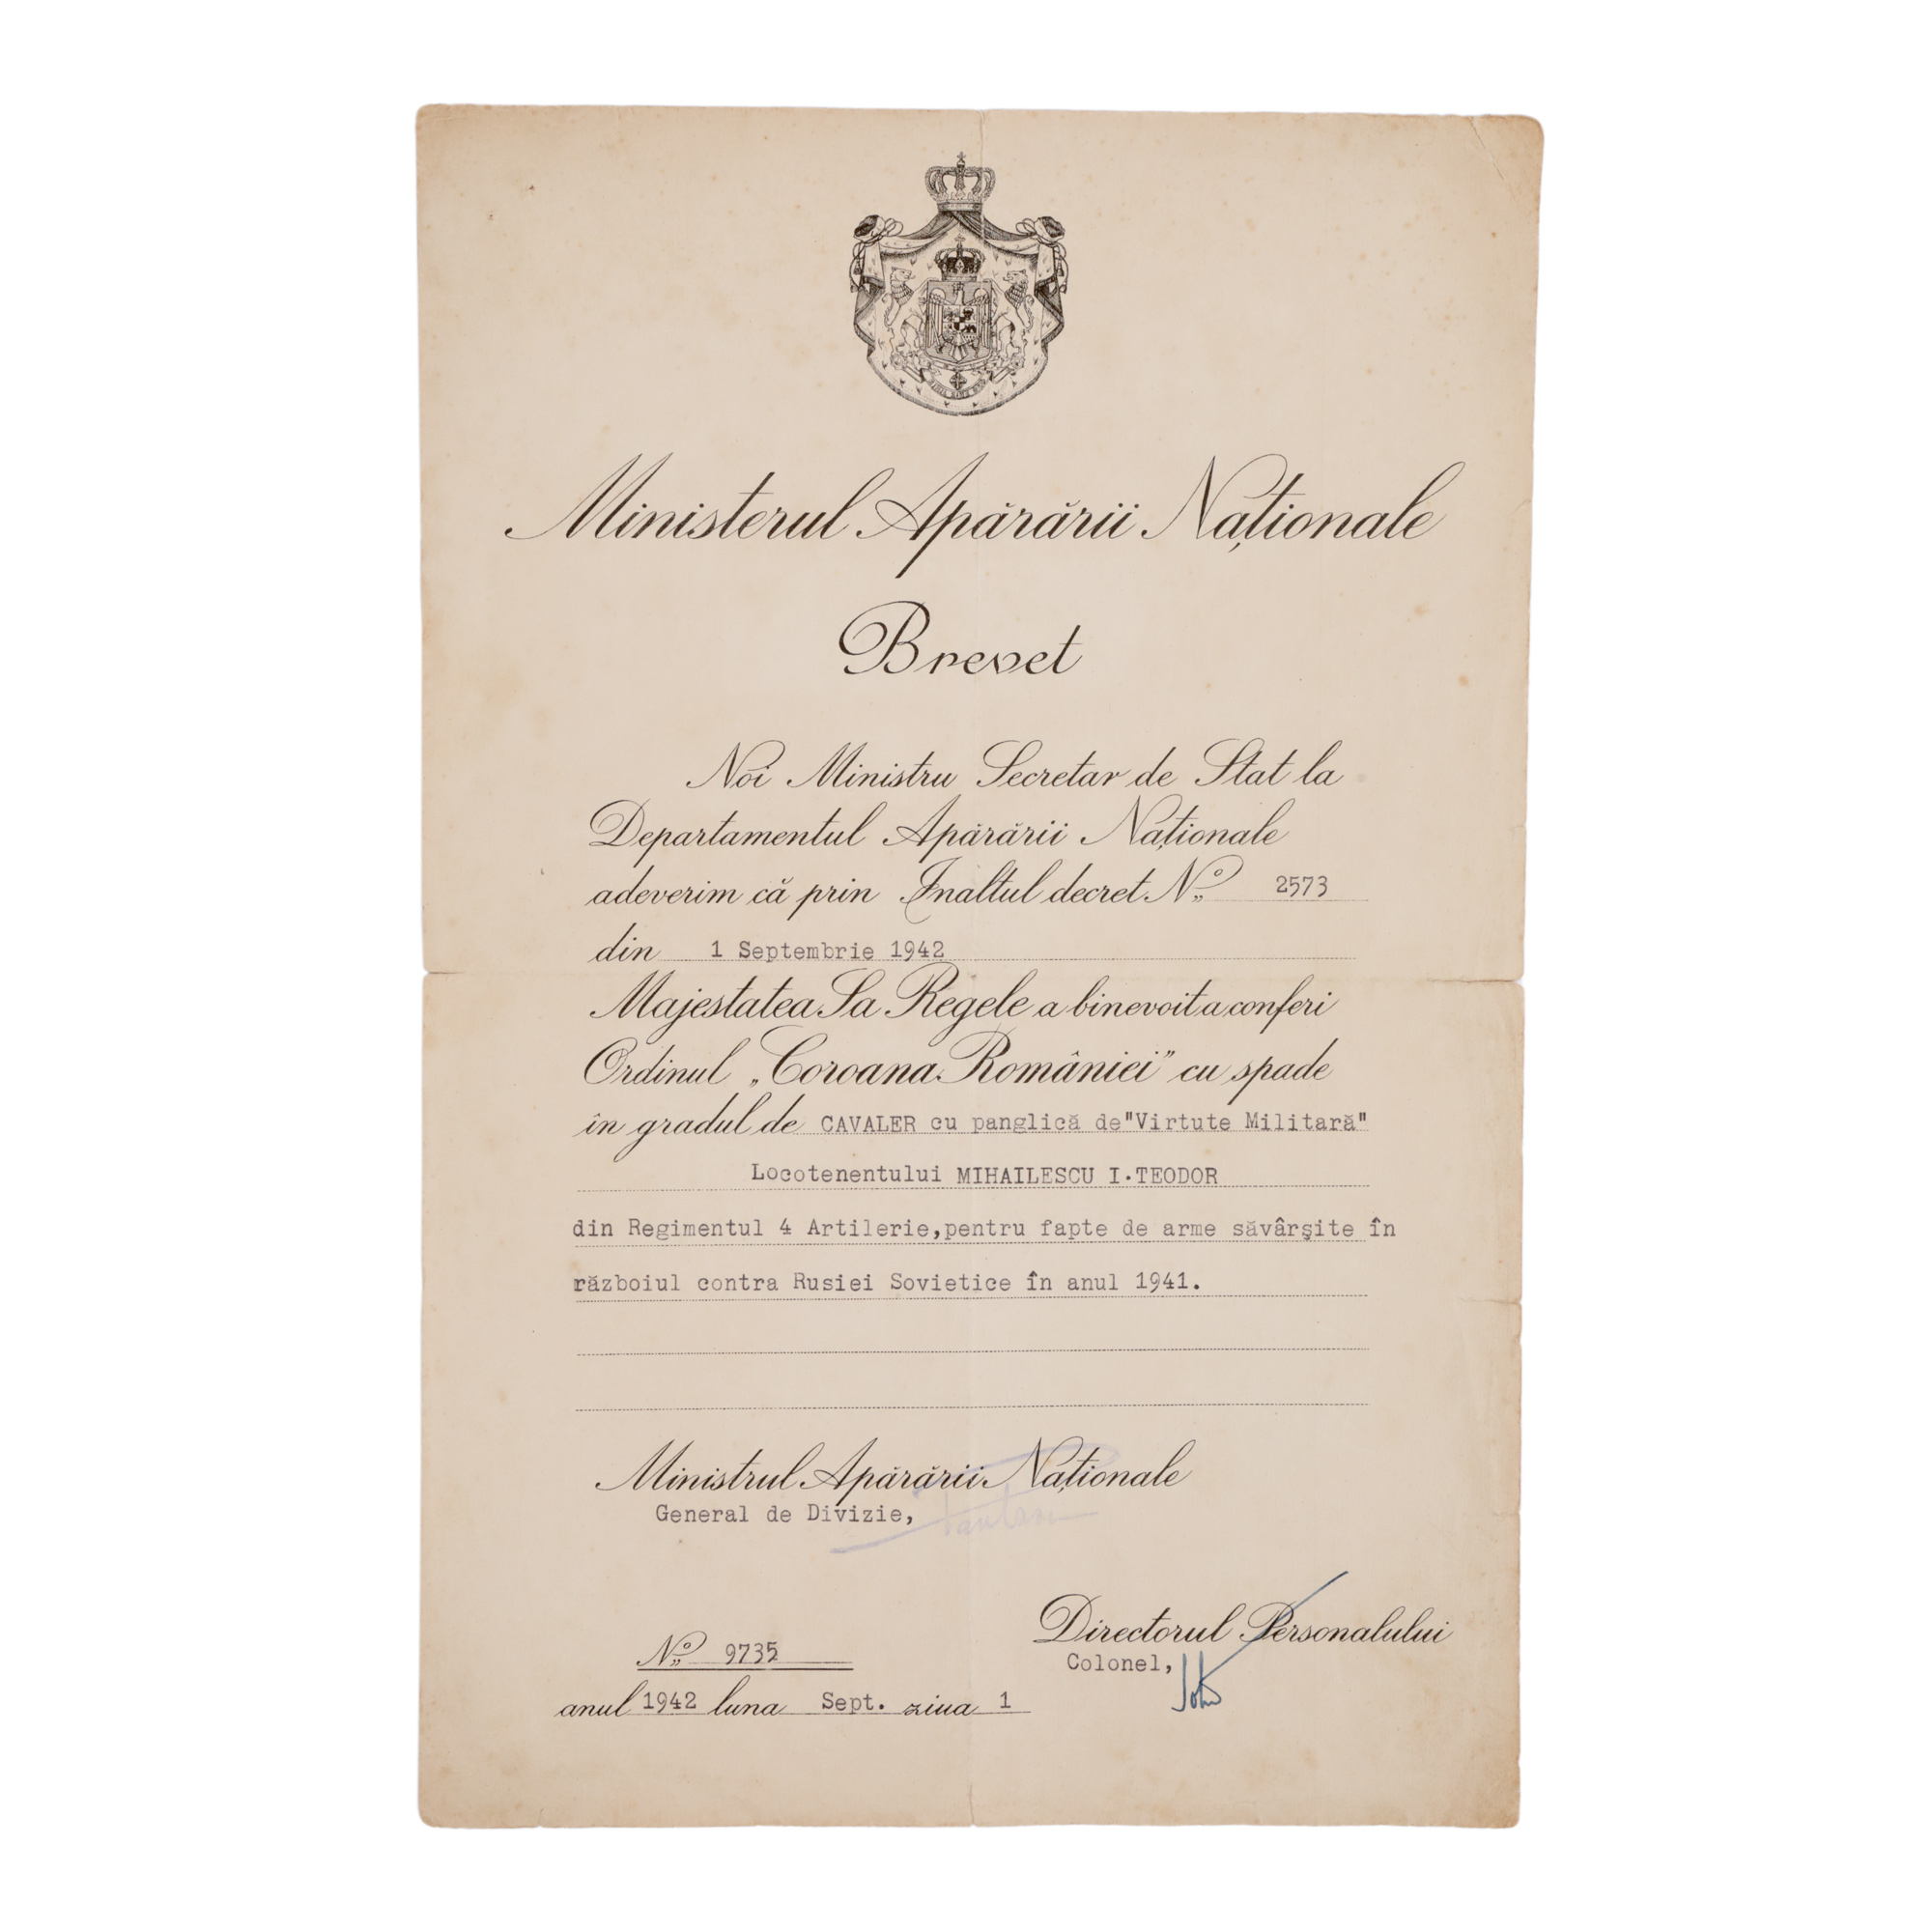 Ministerul Apărării Naționale
Brevet
Noi Ministru Secretar de Stat la
Departamentul Apărării Naționale
adeverim că prin Inaltul decret No 2573
din 1 Septembrie 1942
Majestatea Sa Regele a binevoit a conferi
Ordinul „Coroana României” cu spade
în gradul de CAVALER cu panglică de"Virtute Militară"
Locotenentului MIHAILESCU I.TEODOR
din Regimentul 4 Artilerie,pentru fapte de arme săvârşite în
războiul contra Rusiei Sovietice în anul 1941.
Ministrul Apărării Naționale
General de Divizie,
Directorul Personalului
Colonel,
No 9735
anul 1942 luna Sept. ziua 1